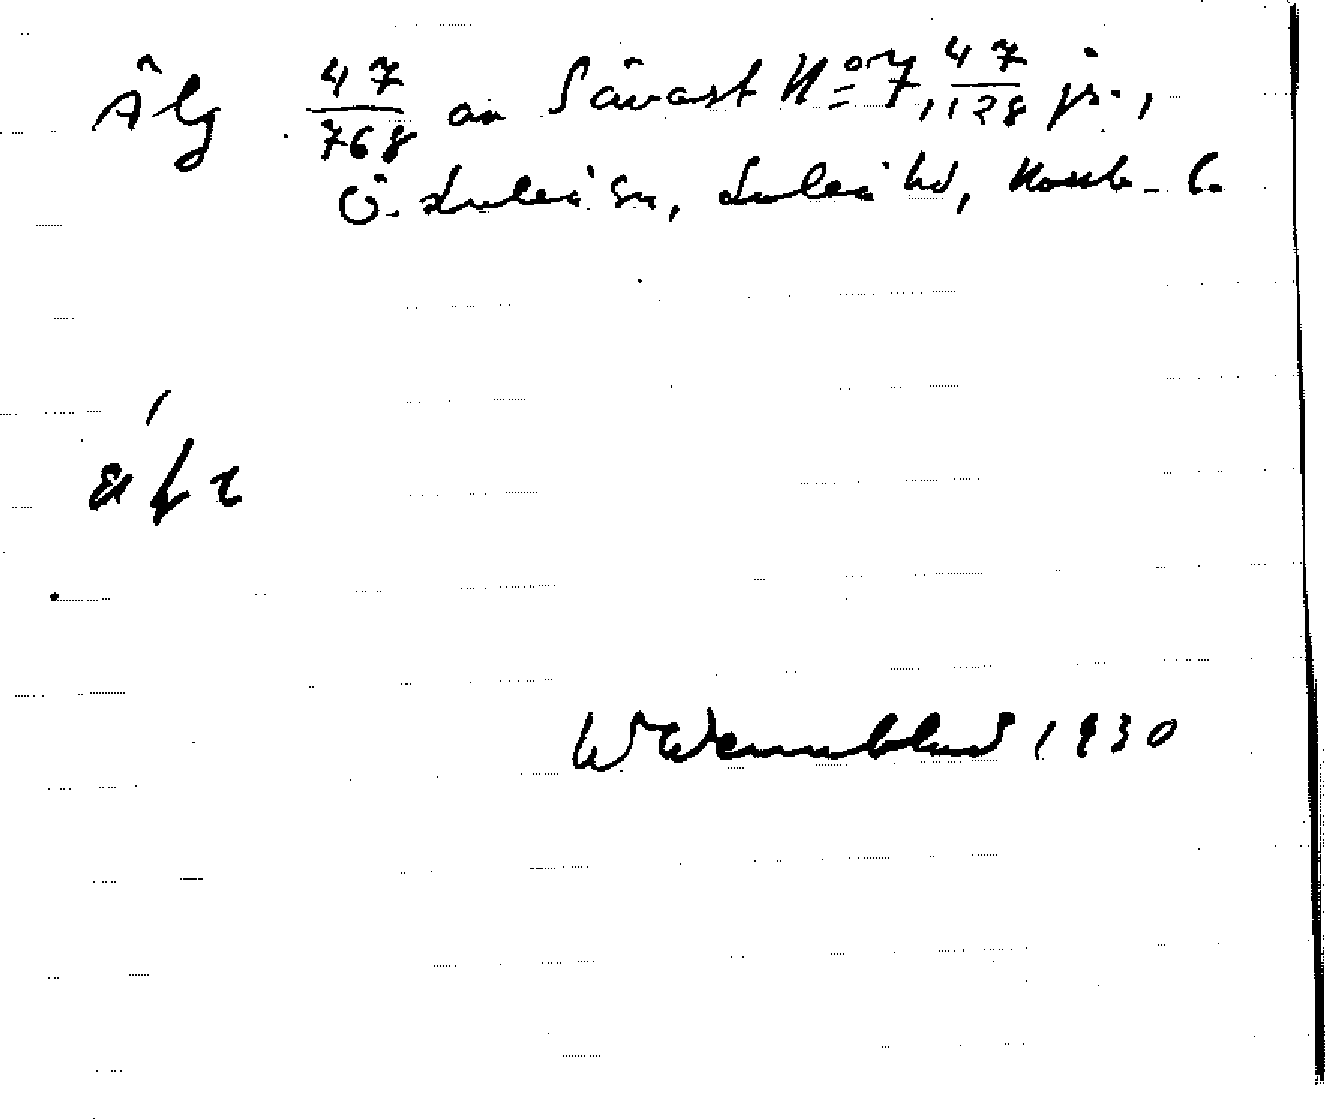 Älg 47/768 av Sävast No 7, 47/128 jr.,
Ö. Luleå sn, Luleå hd, Norrb. l.
äfr
W Wennblad 1930